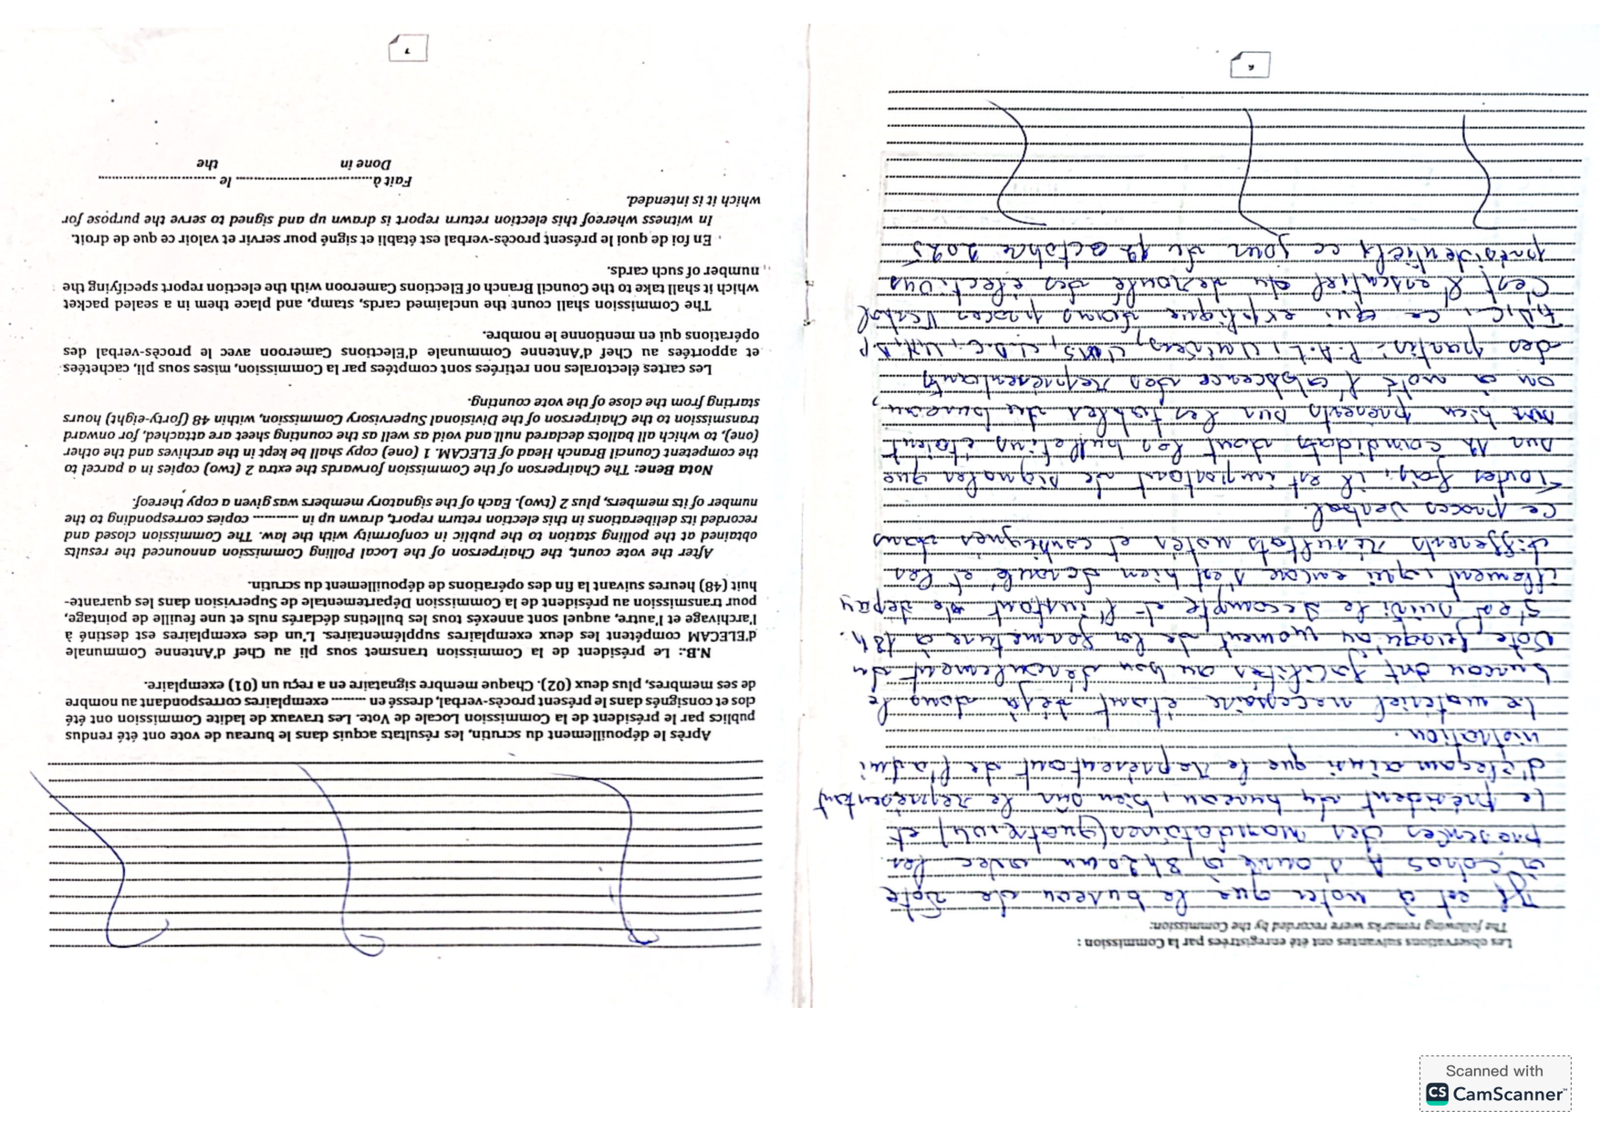 Les observations suivantes ont été enregistrées par la Commission :
The following remarks were recorded by the Commission:
Il est à noter que le bureau de vote
à cohos A s'ouvre à 8h20mn avec les
presences des mandatoires (quatre, 04) et
Le président du bureau, bien sur le représentant
d'eleçam ainsi que le représentant de l'admi
nistration.
Le matériel necessaire étant déjà dans le
bureau ont facilités au bon deroulement du
Vote jusqu'au moment de la fermeture à 18h.
S'est suivi le decompte et l'instant de depay
illement qui encore s'est bien deroulé et les
differents résultats notés et consignés dans
ce proces verbal.
Toutes fois, il est important de signaler que
sur 12 candidats dont les bulletins étaient
bien présents sur les tables du bureau,
on a noté l'abscence des représentants
des partis: P.A.L, Univers, UMS, U.D.C, U.N.D.P
F.D.C, ce qui explique dans proces Verbal
C'est l'essentiel du deroulé des élections
présidentiely ce jour du 12 octobre 2025
6
Après le dépouillement du scrutin, les résultats acquis dans le bureau de vote ont été rendus
publics par le président de la Commission Locale de Vote. Les travaux de ladite Commission ont été
clos et consignés dans le présent procès-verbal, dressé en ........ exemplaires correspondant au nombre
de ses membres, plus deux (02). Chaque membre signataire en a reçu un (01) exemplaire.
N.B.: Le président de la Commission transmet sous pli au Chef d'Antenne Communale
d'ELECAM compétent les deux exemplaires supplémentaires. L'un des exemplaires est destiné à
l'archivage et l'autre, auquel sont annexés tous les bulletins déclarés nuls et une feuille de pointage,
pour transmission au président de la Commission Départementale de Supervision dans les quarante-
huit (48) heures suivant la fin des opérations de dépouillement du scrutin.
After the vote count, the Chairperson of the Local Polling Commission announced the results
obtained at the polling station to the public in conformity with the law. The Commission closed and
recorded its deliberations in this election return report, drawn up in ........... copies corresponding to the
number of its members, plus 2 (two). Each of the signatory members was given a copy thereof.
Nota Bene: The Chairperson of the Commission forwards the extra 2 (two) copies in a parcel to
the competent Council Branch Head of ELECAM. 1 (one) copy shall be kept in the archives and the other
(one), to which all ballots declared null and void as well as the counting sheet are attached, for onward
transmission to the Chairperson of the Divisional Supervisory Commission, within 48 (forty-eight) hours
starting from the close of the vote counting.
Les cartes électorales non retirées sont comptées par la Commission, mises sous pli, cachetées
et apportées au Chef d'Antenne Communale d'Elections Cameroon avec le procès-verbal des
opérations qui en mentionne le nombre.
The Commission shall count the unclaimed cards, stamp, and place them in a sealed packet
which it shall take to the Council Branch of Elections Cameroon with the election report specifying the
number of such cards.
En foi de quoi le présent procès-verbal est établi et signé pour servir et valoir ce que de droit.
In witness whereof this election return report is drawn up and signed to serve the purpose for
which it is intended.
Fait à ........................... le ...........................
Done in the
7
Scanned with
CS CamScanner